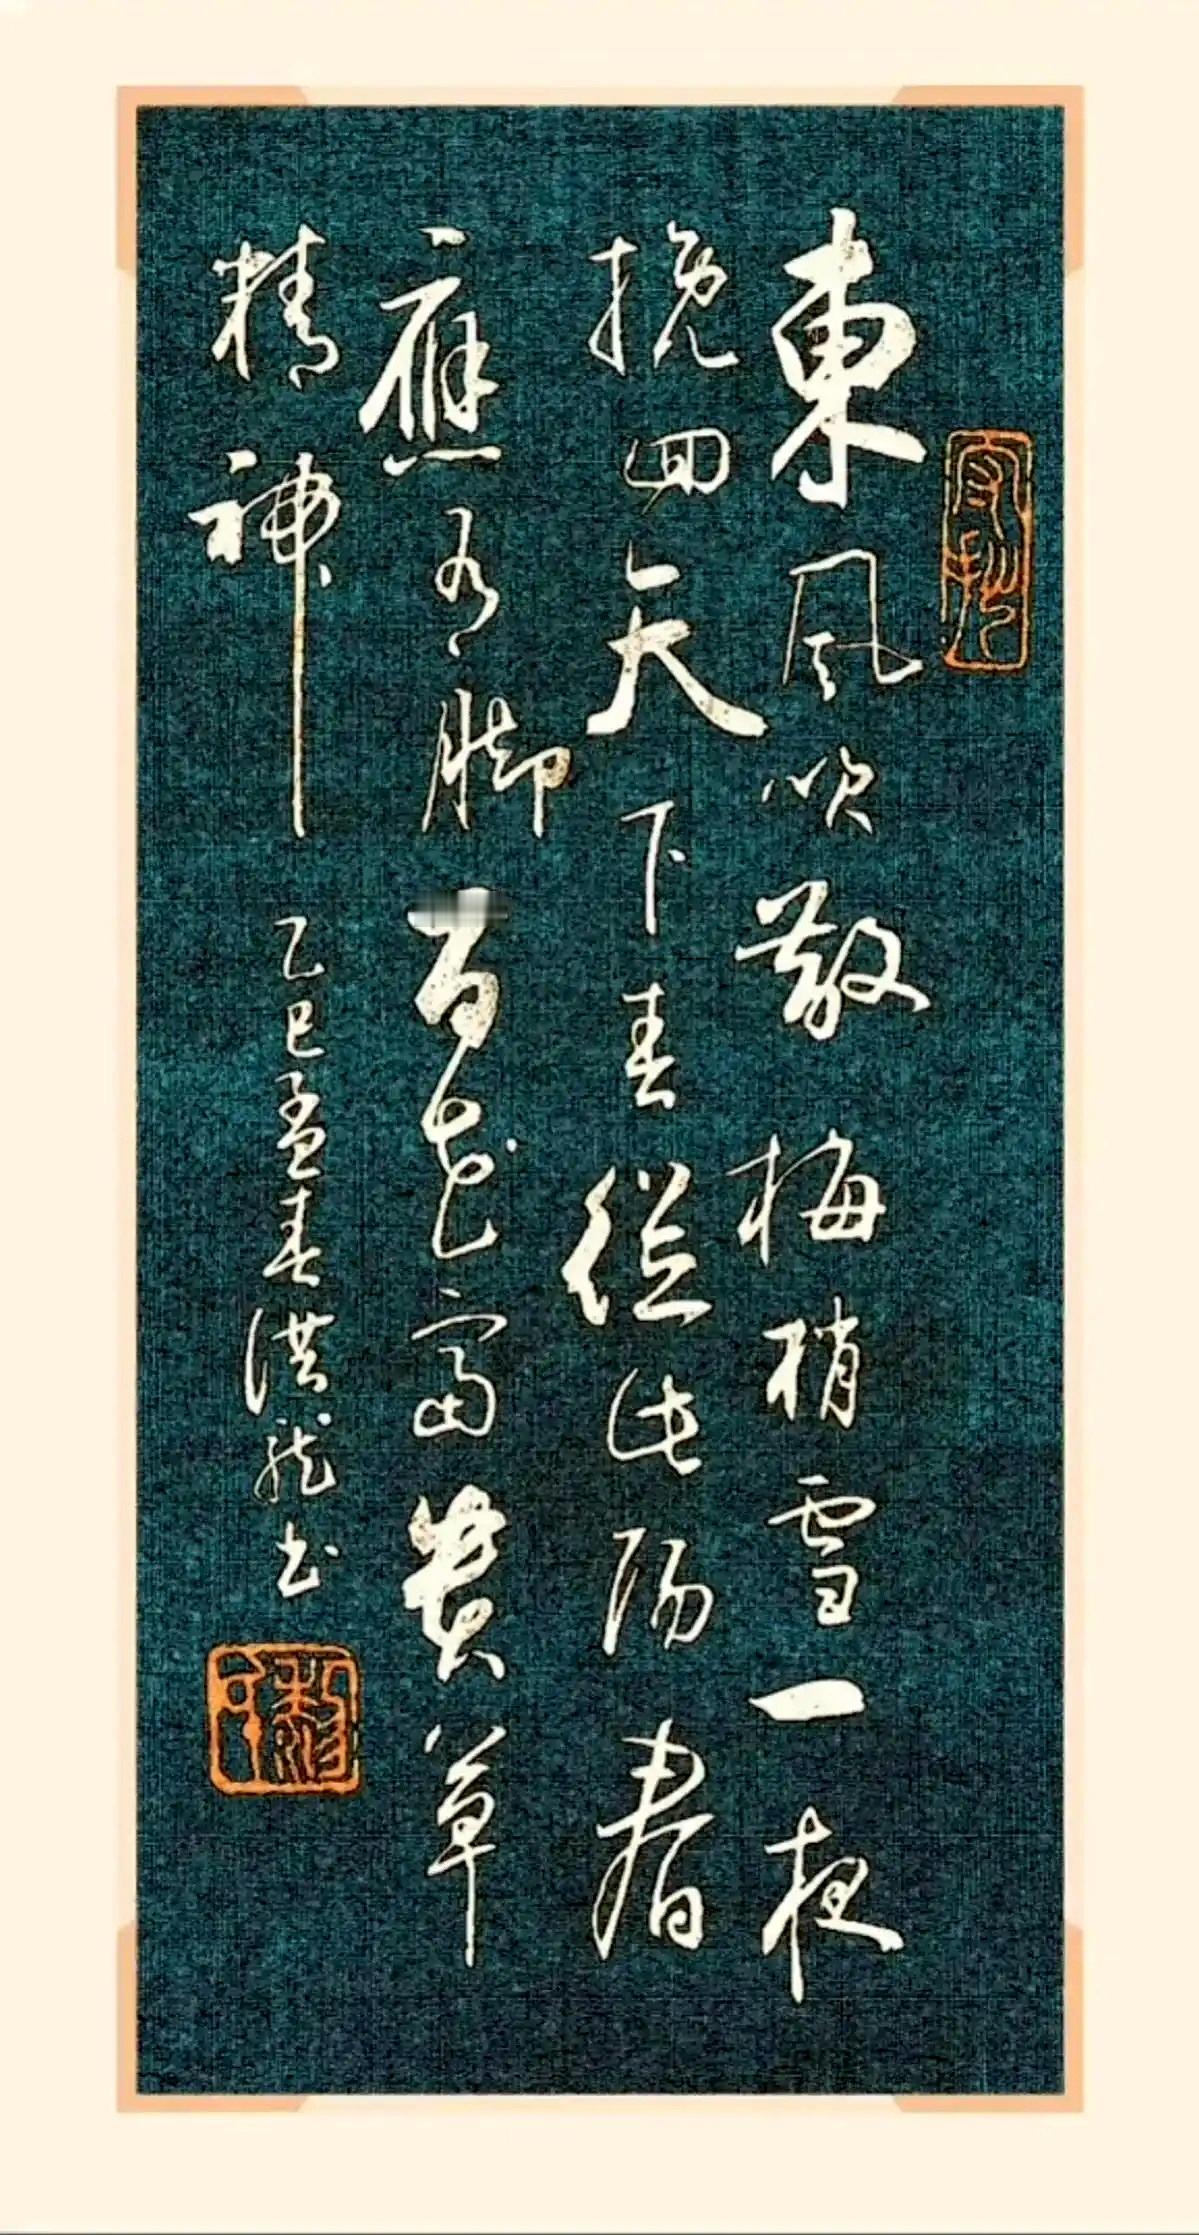 東風吹散梅梢雪一夜
挽回天下春從此陽春
應有腳百花富貴草
精神
乙巳孟春洪龍书